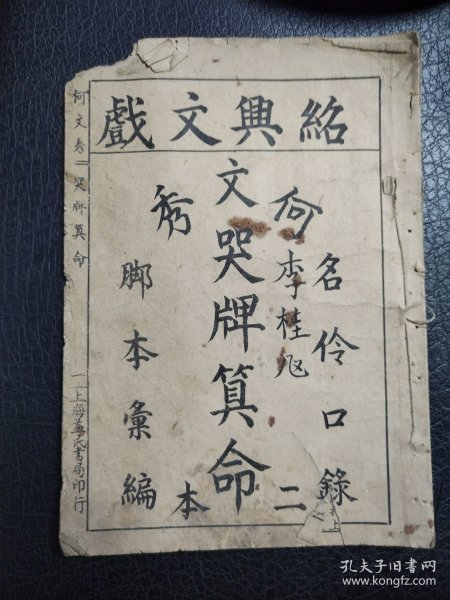 紹興文戲
名伶口錄
李桂
何文秀
哭牌算命
二本
脚本彙編
何文秀二哭牌算命
上海益民書局印行
孔夫子旧书网
www.kongfz.com